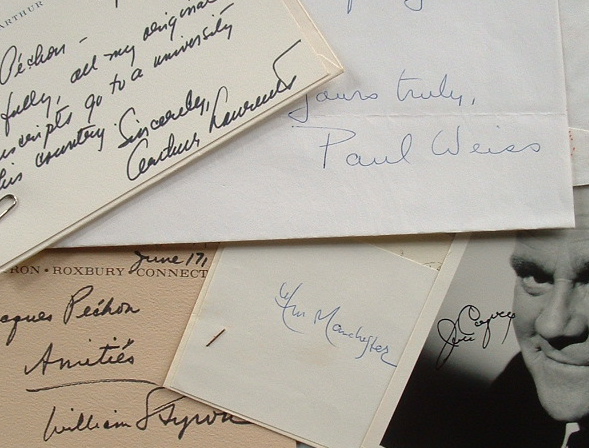 ARTHUR
Péchon –
fully, all my original
scripts go to a university
this country.
Sincerely,
Arthur Laurents
Yours truly,
Paul Weiss
RON • ROXBURY CONNECT
June 17,
cques Péchon
Amitiés
William Styron
Wm Manchester